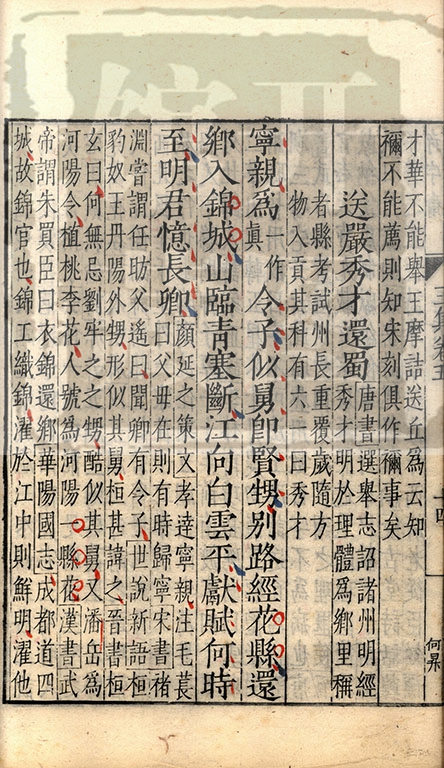 才華不能舉王摩詰送丘爲云知
禰不能薦則知宋刻俱作禰事矣
送嚴秀才還蜀
唐書選舉志詔諸州明經
秀才明於理體爲鄉里稱
者縣考試州長重覆歲隨方
物入貢其科有六一曰秀才
寧親爲一作眞令子似舅即賢甥別路經花縣還
鄉入錦城山臨青塞斷江向白雲平獻賦何時
至明君憶長卿
顏延之策文孝達寧親注毛萇
曰父母在則有時歸寧宋書褚
淵嘗謂任昉父遙曰聞卿有令子世說新語桓
豹奴王丹陽外甥形似其舅桓甚諱之晉書桓
玄曰何無忌劉牢之之甥酷似其舅又潘岳爲
河陽令植桃李花人號爲河陽一縣花漢書武
帝謂朱買臣曰衣錦還鄉華陽國志成都道四
城故錦官也錦工織錦濯於江中則鮮明濯他
何昇